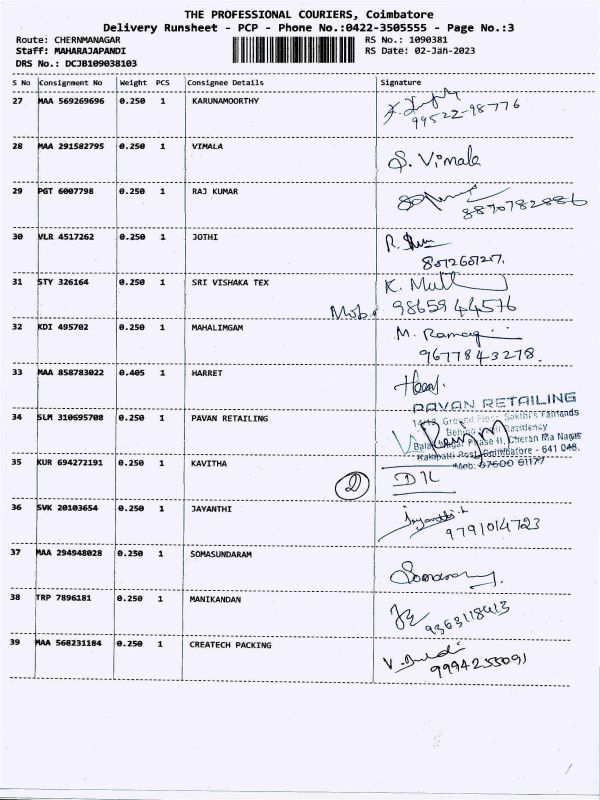 THE PROFESSIONAL COURIERS, Coimbatore
Delivery Runsheet - PCP - Phone No.:0422-3505555 - Page No.:3
Route: CHERNMANAGAR RS No.: 1090381
Staff: MAHARAJAPANDI RS Date: 02-Jan-2023
DRS No.: DCJB109038103
S No Consignment No Weight PCS Consignee Details Signature
27 MAA 569269696 0.250 1 KARUNAMOORTHY
99522-98776
28 MAA 291582795 0.250 1 VIMALA S. Vimala
29 PGT 6007798 0.250 1 RAJ KUMAR
8870782886
30 VLR 4517262 0.250 1 JOTHI
31 STY 326164 0.250 1 SRI VISHAKA TEX K.
Mob: 98659 44576
32 KDI 495702 0.250 1 MAHALIMGAM M.
9677843278.
33 MAA 858783022 0.405 1 HARRET
PAVAN RETAILING
34 SLM 310695708 0.250 1 PAVAN RETAILING
Phase II, Cheran Ma Nagar
Kalapatti Post, Coimbatore - 641 048.
Mob: 87600 61177
35 KUR 694272191 0.250 1 KAVITHA
2
36 SVK 20103654 0.250 1 JAYANTHI
9791014723
37 MAA 294948028 0.250 1 SOMASUNDARAM
38 TRP 7896181 0.250 1 MANIKANDAN
39 MAA 568231184 0.250 1 CREATECH PACKING V.
9994255091